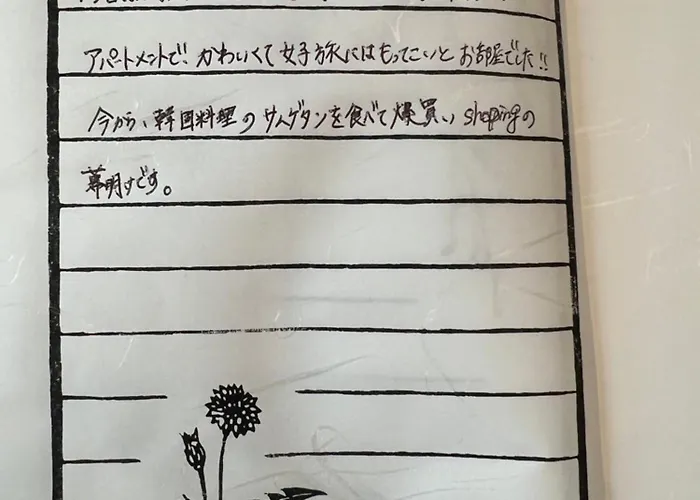 アパートメントで! かわいくて女子旅にはもってこいと お部屋でした!!
今から、韓国料理のサムゲタンを食べて爆買い shoppingの
幕明けです。